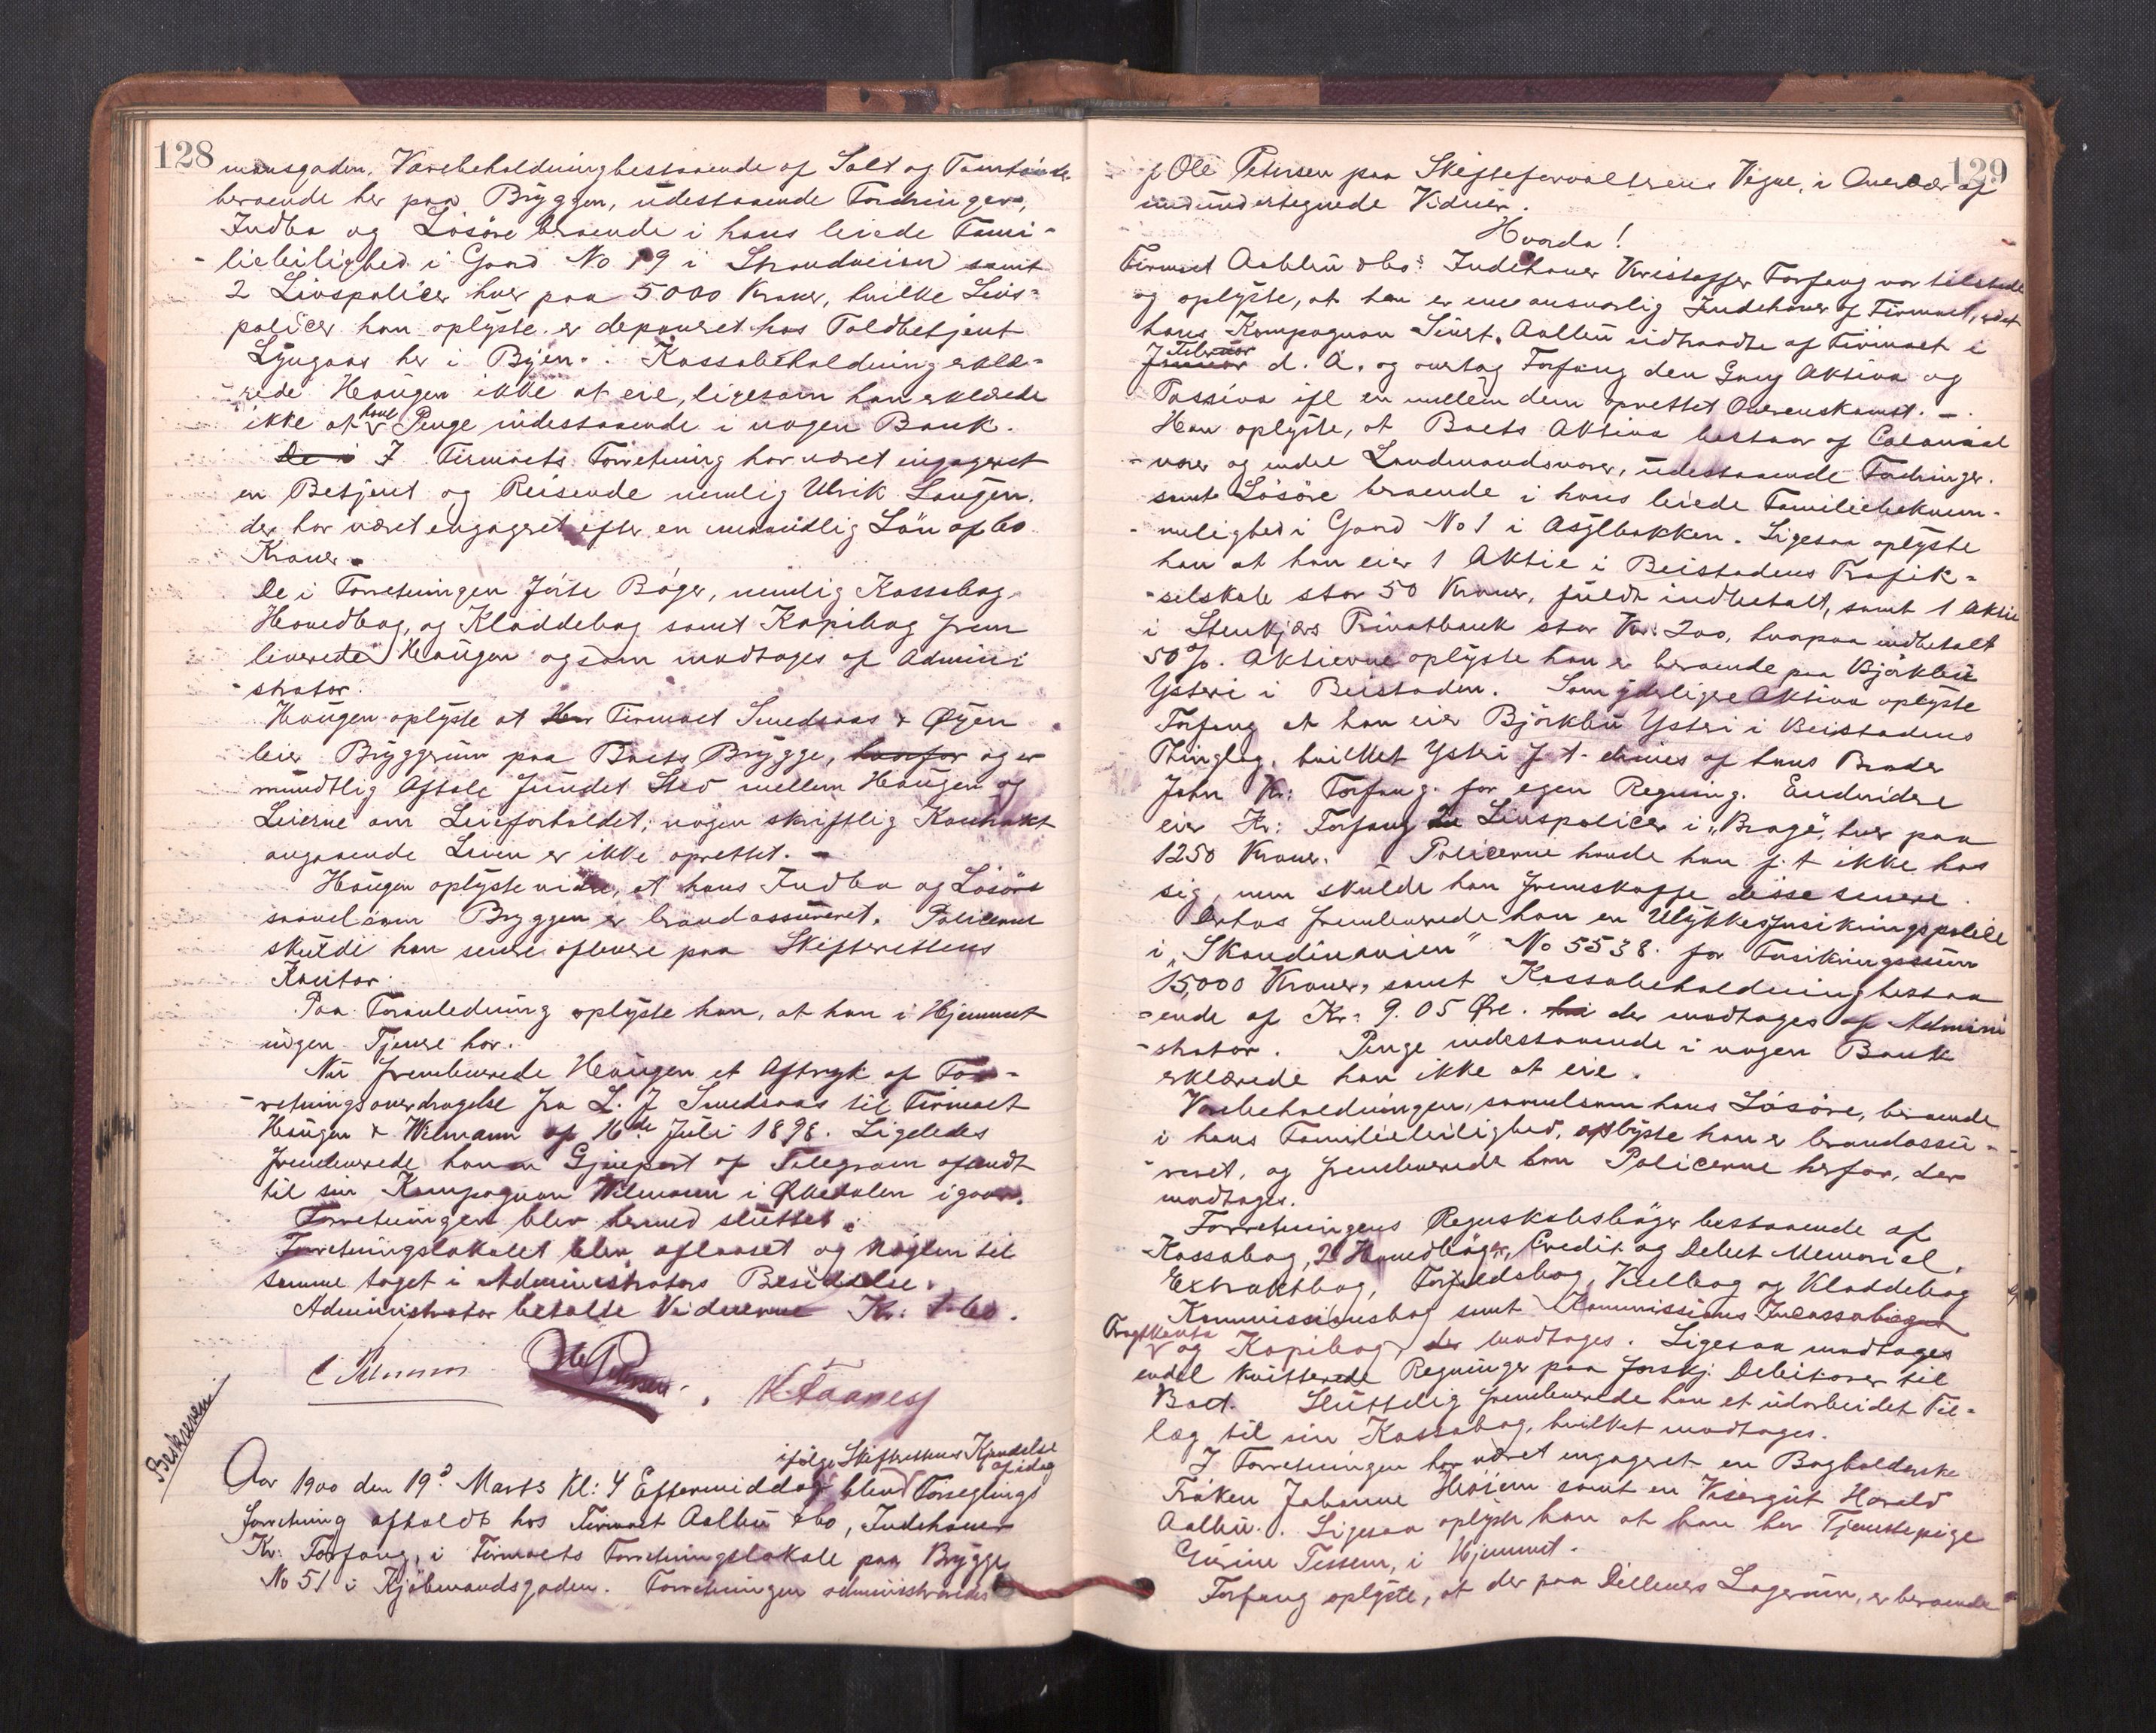 128
mansgaden. Varebeholdning bestaaende af Salt og Tomtønder
beroende her paa Bryggen, udestaaende Fordringer,
Indbo og Løsøre beroende i hans leiede Fami-
-lieleilighed i Gaard No 19 i Strandveien samt
2 Livspolicer hver paa 5000 Kroner, hvilke Livs-
policer han oplyste er deponeret hos Toldbetjent
Lyngaas her i Byen. Kassabeholdning erklæ-
-rede Haugen ikke at eie, ligesom han erklærede
ikke at have Penge indestaaende i nogen Bank.
De i I Firmaets Forretning har været engageret
en Betjent og Reisende nemlig Ulrik Haugen.
der har været engageret efter en maanedlig Løn af 60
Kroner.
De i Forretningen førte Bøger, nemlig Kassabog,
Hovedbog, og Kladdebog samt Kopibog frem
leverede Haugen og som modtages af Admini
-strator.
Haugen oplyste at Her Firmaet Smedsaas & Øyen
leier Bryggerum paa Boets Brygge, hvorfor og er
mundtlig Aftale fundet Sted mellem Haugen og
Leierne om Leieforholdet; nogen skriftlig Kontrakt
angaaende Leien er ikke oprettet. –
Haugen oplyste videre, at hans Indbo og Løsøre
saavelsom Bryggen er brandassureret. Policerne
skulde han senere aflevere paa Skifterettens
Kontor.
Paa Foranledning oplyste han, at han i Hjemmet
ingen Tjener har.
Nu fremleverede Haugen et Aftryk af For-
-retningsoverdragelse fra L. J Smedsaas til Firmaet
Haugen & Wilmann af 16de Juli 1898. Ligeledes
fremleverede han en Gjenpart af Telegram afsendt
til sin Kompagnon Wilmann i Orkedalen igaar.
Forretningen blev hermed sluttet.
Forretningslokalet blev aflaaset og Nøglen til
samme taget i Administrators Besiddelse.
Administrator betalte Vidnerne Kr: 1.60.
Ole Petersen K. Taanes
Beskreven
ifølge Skifterettens Kjendelse
af idag
Aar 1900 den 19d Marts Kl: 4 Eftermiddag blev Forseglings
forretning afholdt hos Firmaet Aalbu & Co, Indehaver
Kr. Forfang, i Firmaets Forretningslokale paa Brygge
No 51 i Kjøbmandsgaden. Forretningen administreredes
129
af Ole Petersen paa Skifteforvalterens Vegne, i Overvær af
undertegnede Vidner.
Hvorda!
Firmaet Aalbu & Co's Indehaver Kristoffer Forfang var tilstede
og oplyste, at han er eneansvarlig Indehaver af Firmaet, idet
hans Kompagnon Sivert Aalbu udtraadte af Firmaet i
Februar
Januar d. A. og overtog Forfang den Gang Aktiva og
Passiva ifl en mellem dem oprettet Overenskomst. –
Han oplyste, at Boets Aktiva bestaar af Colonial
-varer og endel Landmandsvarer, udestaaende Fordringer.
samt Løsøre beroende i hans leiede Familiebekvem-
-melighed i Gaard No 1 i Asylbakken. Ligesaa oplyste
han at han eier 1 Aktie i Beistadens Trafik-
-selskab stor 50 Kroner, fuldt indbetalt, samt 1 Aktie
i Stenkjærs Privatbank stor Kr: 200, hvorpaa indbetalt
50%. Aktierne oplyste han er beroende paa Bjørklu
Ysteri i Beistaden. Som yderligere Aktiva oplyste
Forfang at han eier Bjørklu Ysteri i Beistadens
Thinglag, hvilket Ysteri f. t. drives af hans Broder
John Kr: Forfang. for egen Regning. Endvidere
eier Kr: Forfang 2 Livspolicer i „Brage", hver paa
1250 Kroner. Policerne havde han f. t ikke hos
sig, men skulde han fremskaffe disse senere.
Derhos fremleverede han en Ulykkesforsikringspolice
i „Skandinavien" No 5538. for Forsikringssum
15,000 Kroner, samt Kassabeholdning bestaa
-ende af Kr: 9.05 Øre. der modtages af Admini
-strator. Penge indestaaende i nogen Bank
erklærede han ikke at eie.
Varebeholdningen, saavelsom hans Løsøre, beroende
i hans Familieleilighed, oplyste han er brandassu-
-reret, og fremleverede han Policerne herfor, der
modtages.
Forretningens Regnskabsbøger bestaaende af
Kassabog, 2 Hovedbøger, Credit og Debet Memorial,
Extraktbog, Forfaldsbog, Vexelbog og Kladdebog
Kommissionsbog samt Kommissions Incassobøger
Fragtkonto
og Kopibog der modtages. Ligesaa modtages
endel kvitterede Regninger paa forskj. Debitorer til
Boet. Sluttelig fremleverede han et udarbeidet Til-
læg til sin Kassabog, hvilket modtages.
I Forretningen har været engageret en Bogholderske
Frøken Johanne Heiem samt en Visergut Harald
Aalbu. Ligesaa oplyste han at han har Tjenestepige
Gurine Tessem, i Hjemmet.
Forfang oplyste, at der paa Dillners Lagerrum, er beroende